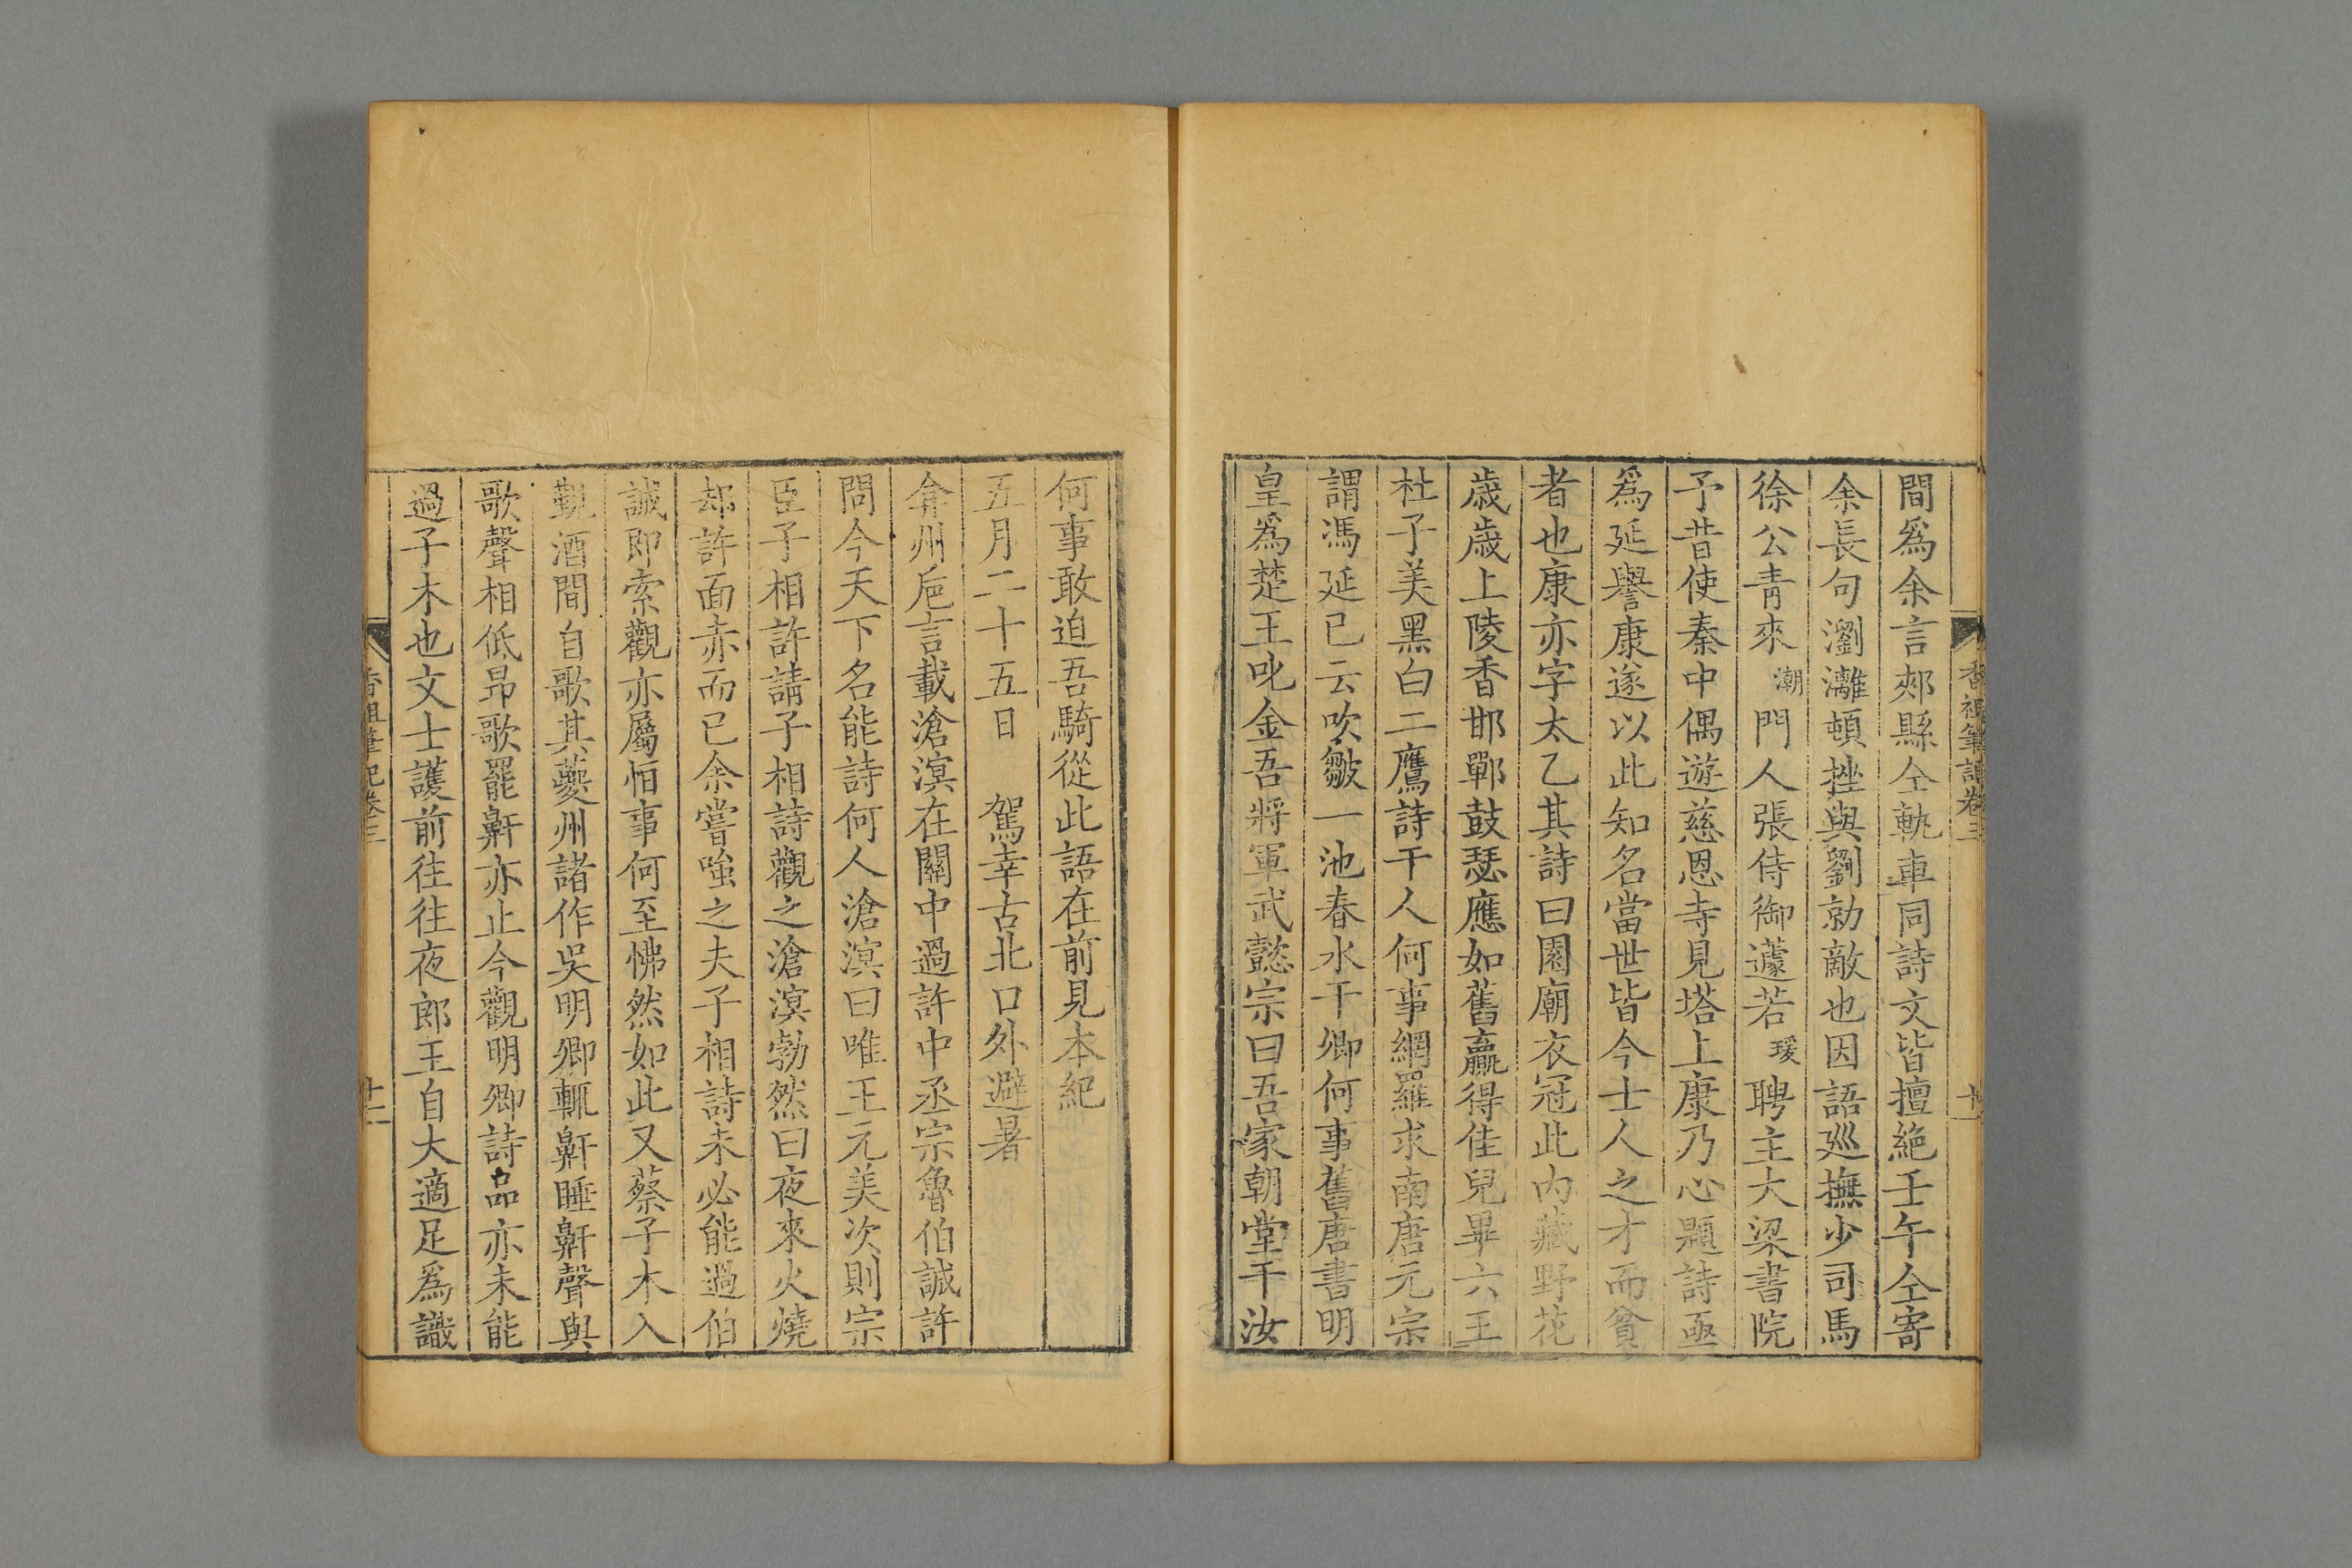 香祖筆記卷三
十一
間為余言郟縣仝軌車同詩文皆擅絶壬午仝寄
余長句瀏灕頓挫與劉勍敵也因語巡撫少司馬
徐公青來潮門人張侍御蘧若瑗聘主大梁書院
予昔使秦中偶遊慈恩寺見塔上康乃心題詩亟
爲延譽康遂以此知名當世皆今士人之才而貧
者也康亦字太乙其詩曰園廟衣冠此内藏野花
歲歲上陵香邯鄲鼓瑟應如舊贏得佳兒畢六王
杜子美黑白二鷹詩干人何事網羅求南唐元宗
謂馮延已云吹皺一池春水干卿何事舊唐書明
皇爲楚王叱金吾將軍武懿宗曰吾家朝堂干汝
何事敢迫吾騎從此語在前見本紀
五月二十五日 駕幸古北口外避暑
弇州巵言載滄溟在關中過許中丞宗魯伯誠許
問今天下名能詩何人滄溟曰唯王元美次則宗
臣子相許請子相詩觀之滄溟勃然曰夜來火燒
却許面赤而已余嘗嗤之夫子相詩未必能過伯
誠即索觀亦屬恒事何至怫然如此又蔡子木入
覲酒間自歌其夔州諸作吳明卿輒鼾睡鼾聲與
歌聲相低昂歌罷鼾亦止今觀明卿詩品亦未能
過子木也文士護前往往夜郎王自大適足爲識
香祖筆記卷三
十二